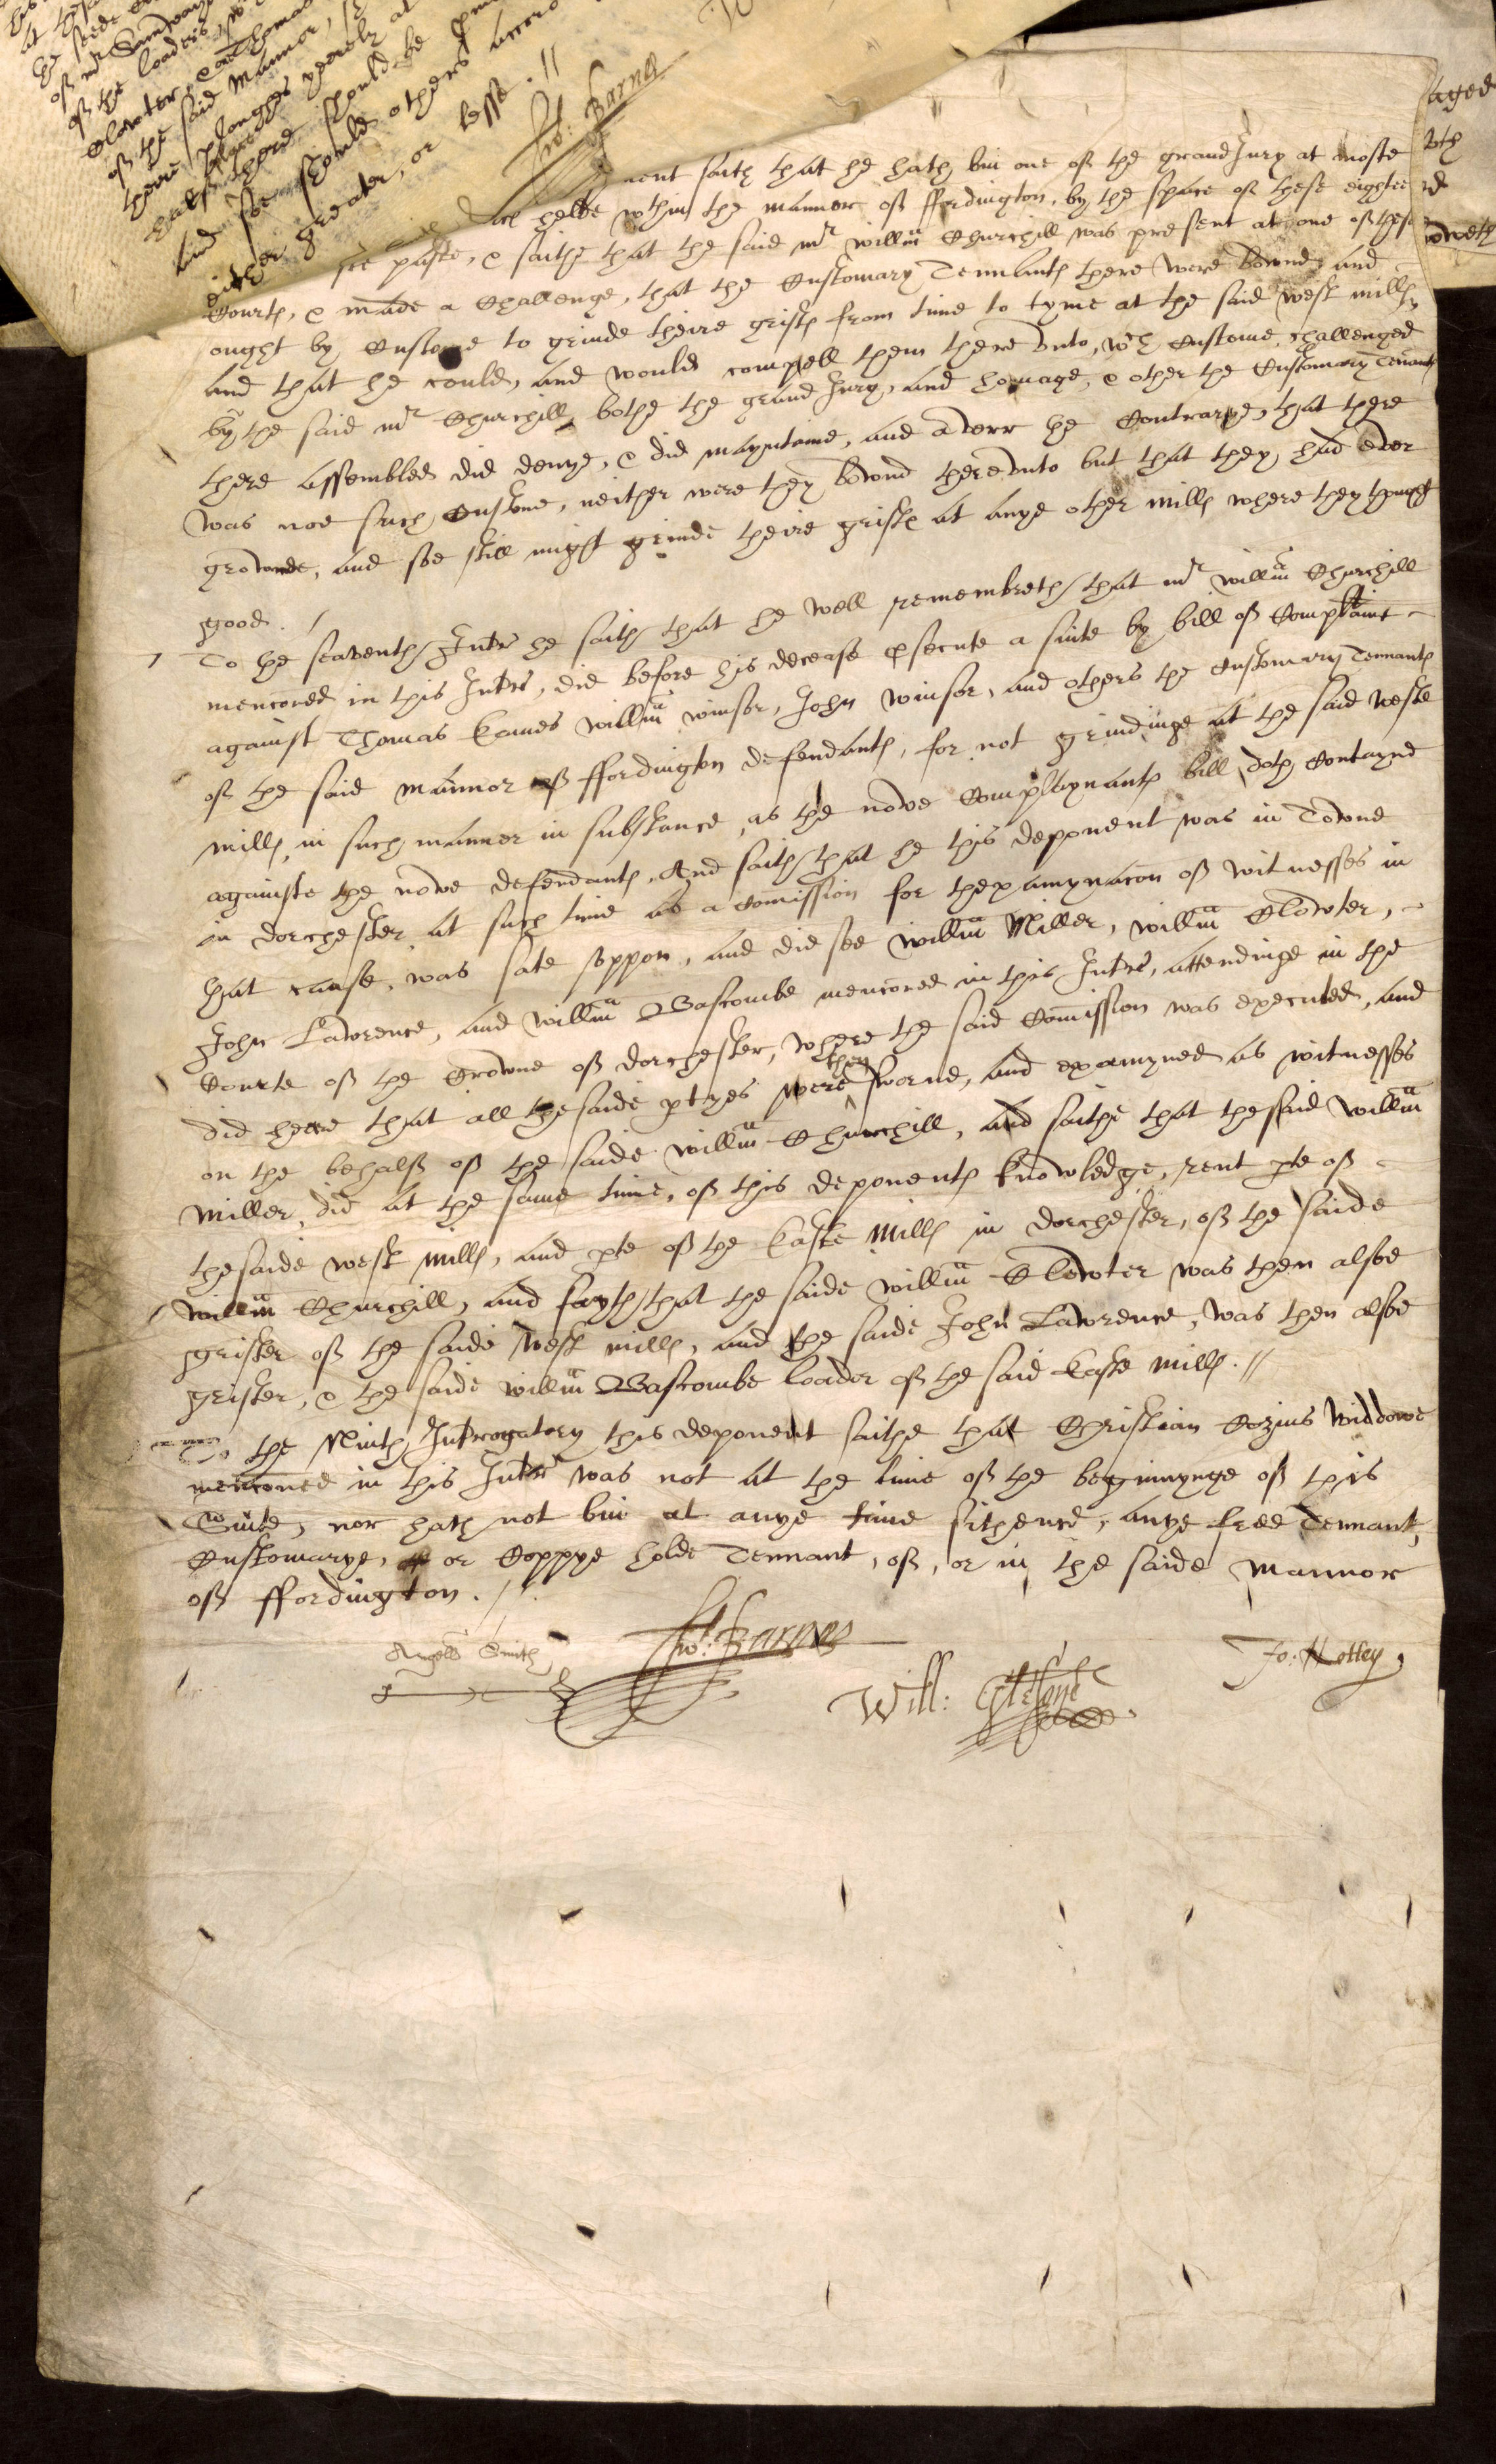 of mr
of the loaders
Clowter, & Thomas
of the said Mannor,
theire ploughes yearely at
halfe there should be
And soe should others
either greater, or lesse .//
Jho: Barnes
aged
nent saith that he hath bin one of the grand Jury at moste
helde wthin the mannor of ffordington, by the space of these eightee
paste, & saithe that the said mr willm Churchill was present at one of these
Courts, & made a Challenge, that the Customary Tennants there were bownde, and
ought by Custome to grinde theire grists from time to tyme at the said west mills,
and that he could, and would compell them therevnto, wch Custome, challenged
by the said mr Churchill, bothe the grand Jury, and homage, & other the Customary Tenants
there assembled did denye, & did mayntaine, and averr he Contrarye, that there
was noe such Custome, neither were they bownd therevnto but that they had ever
grownde, and soe still might grinde theire grists at anye other mills where they thought
good . /
7 To he seaventh Intr he saith that he well remembreth that mr willm Churchill
menconed in this Intr, did before his decease psecute a suite by bill of Complainte
against Thomas Eames willm winsor, John winsor, and others the Customary Tennants
of the said Mannor of ffordington defendants, for not grindinge at the said weste
mills, in such manner in substance, as the nowe Complaynants bill doth Contayne
againste the nowe defendants. And saith that he this deponent was in Towne
in dorchester at such time as a Comission for thexamynacon of witnesses in
that cause, was sate vppon, and did see willm Miller, willm Clowter,
John Lawrence, and willm Bascombe menconed in this Intr, attendinge in the
Courte of the Crowne of dorchester, where the said Comission was executed, and
did heare that all the saide ptyes were they sworne, and examyned as witnesses
on the behalf of the saide willm Churchill, and saithe that the said willm
Miller, did at the same time, of this deponents knowledge, rent pte of
the saide west mills, and pte of the Easte Mills in dorchester, of the saide
willm Churchill, and sayth that the saide willm Clowter was then alsoe
grister of the saide west mills, and the saide John Lawrence, was then alsoe
grister, & the saide willm Bascombe loader of the said Easte mills .//
To the Ninth Intrrogatory this deponent saithe that Christian Cozins widdowe
menconed in this Intr was not at the time of the beginnynge of this
Suite, nor hath not bin at anye time sithence, anye free Tennant,
Customarye, or Coppye holde Tennant, of, or in the saide Mannor
of ffordington . /.
Angell Smith
Jho: Barnes
Jo: Notley
Will: